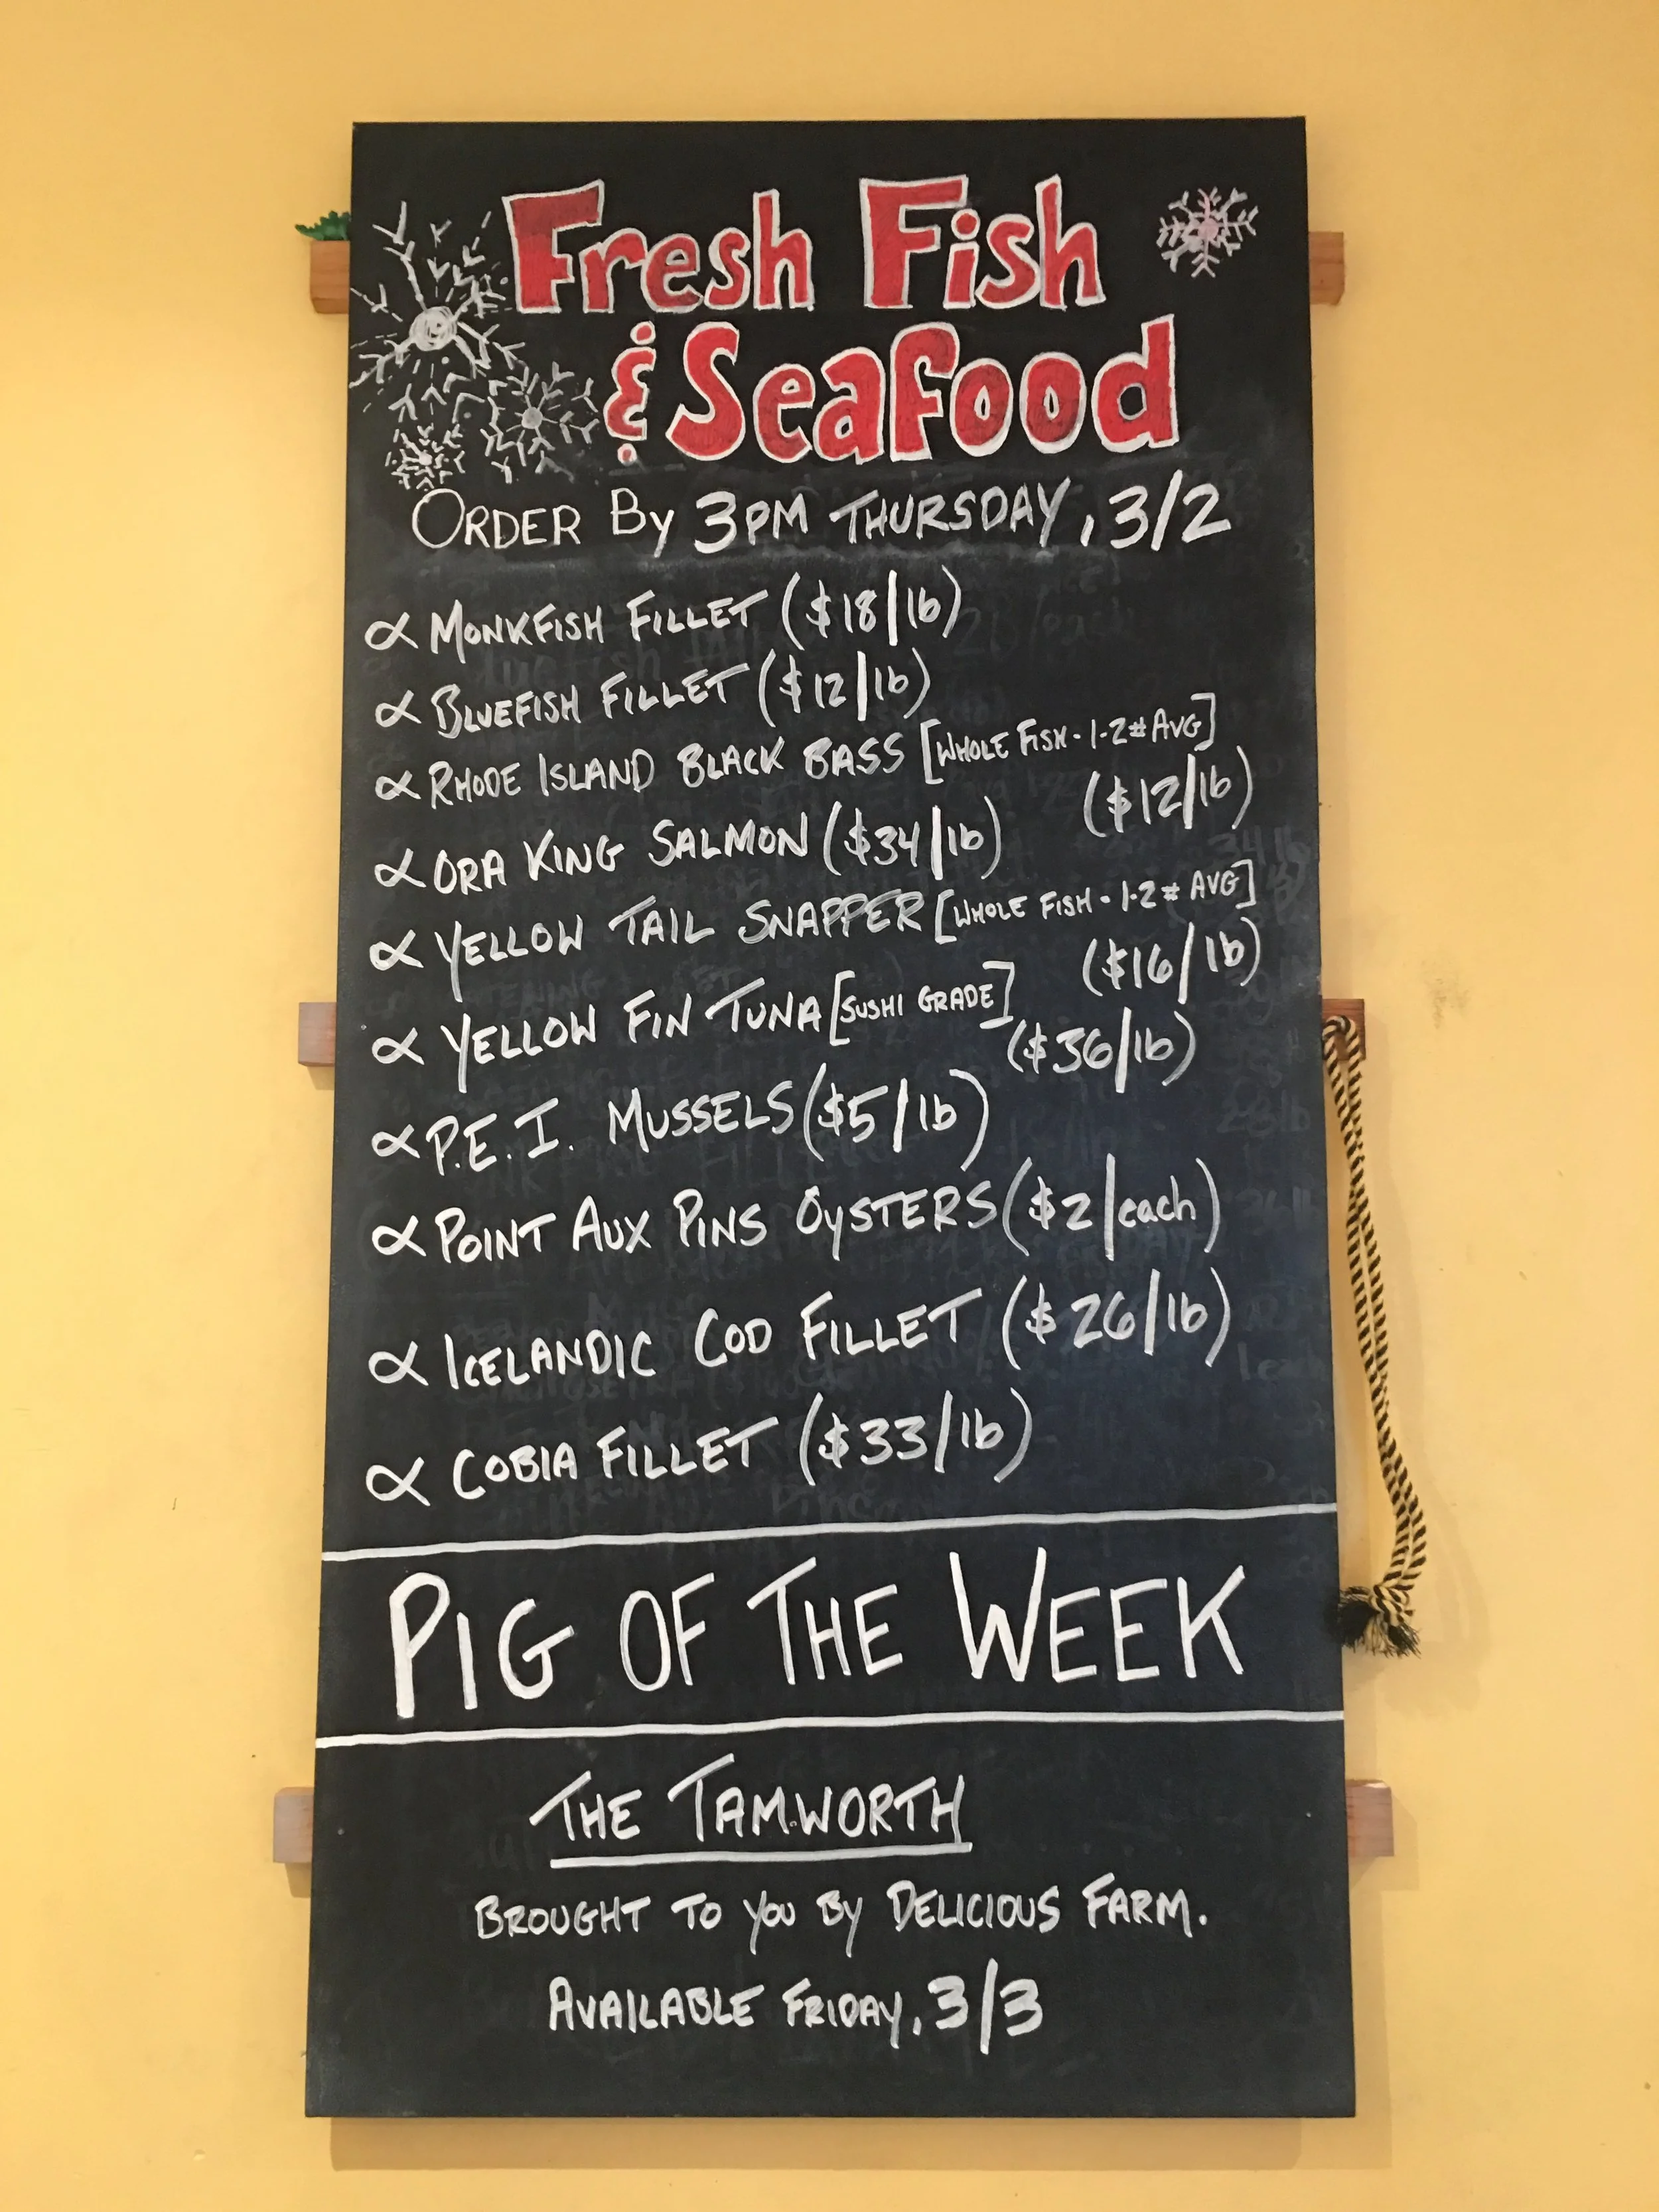 Fresh Fish
& Seafood
ORDER By 3PM THURSDAY, 3/2
∝ MONKFISH FILLET ($18/lb)
∝ BLUEFISH FILLET ($12/lb)
∝ RHODE ISLAND BLACK BASS [WHOLE FISH - 1-2# AVG]
($12/lb)
∝ ORA KING SALMON ($34/lb)
∝ YELLOW TAIL SNAPPER [WHOLE FISH - 1-2# AVG]
($16/lb)
∝ YELLOW FIN TUNA [SUSHI GRADE]
($36/lb)
∝ P.E.I. MUSSELS ($5/lb)
∝ POINT AUX PINS OYSTERS ($2/each)
∝ ICELANDIC COD FILLET ($26/lb)
∝ COBIA FILLET ($33/lb)
PIG OF THE WEEK
THE TAMWORTH
BROUGHT TO YOU BY DELICIOUS FARM.
AVAILABLE FRIDAY, 3/3